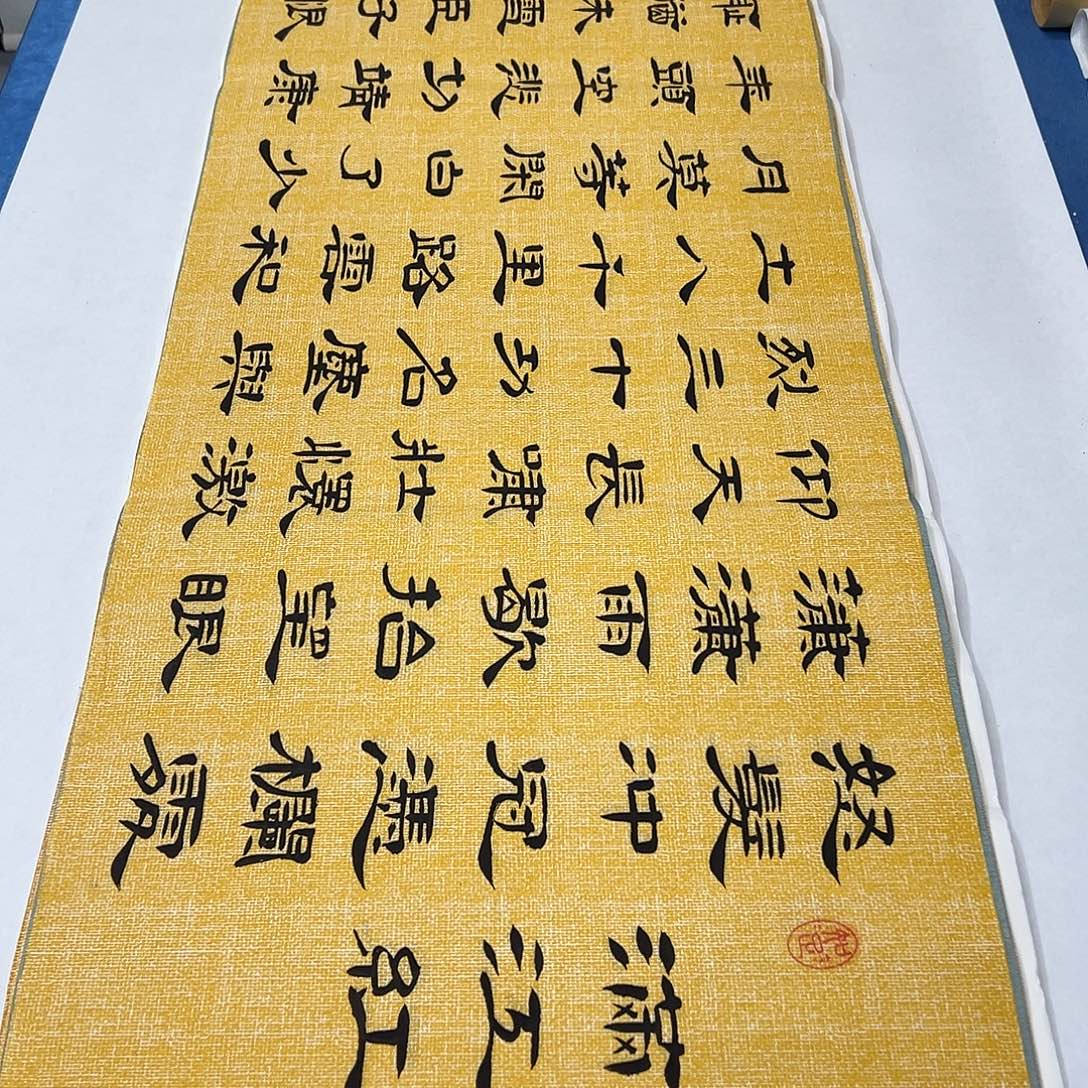 滿江紅
怒髮沖冠憑欄處
瀟瀟雨歇抬望眼
仰天長嘯壯懷激
烈三十功名塵與
土八千里路雲和
月莫等閑白了少
年頭空悲切靖康
恥猶未雪臣子恨